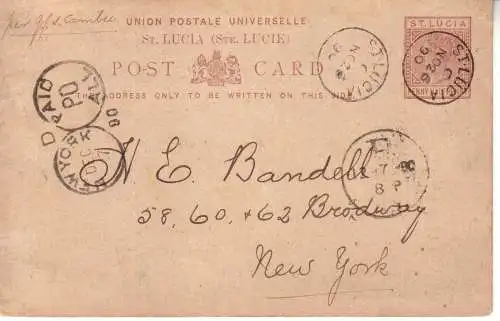 per
UNION POSTALE UNIVERSELLE
ST. LUCIA (STE. LUCIE)
POST CARD
THE ADDRESS ONLY TO BE WRITTEN ON THIS SIDE
ST. LUCIA
PENNY
ST. LUCIA
C
NO 26
90
ST. LUCIA
C
NO 26
90
PAID
ALL
NEW YORK
DEC
90
8 P
H. E. Bandell
58, 60, & 62 Brodway
New York